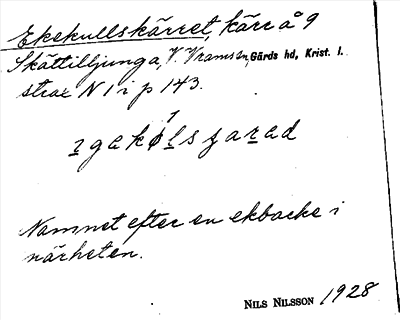 Ekekullskärret, kärr å 9
Skättilljunga, V. Vrams sn, Gärds hd, Krist. l.
strax N 1 i p 143.
Namnet efter en ekbacke i
närheten.
NILS NILSSON 1928